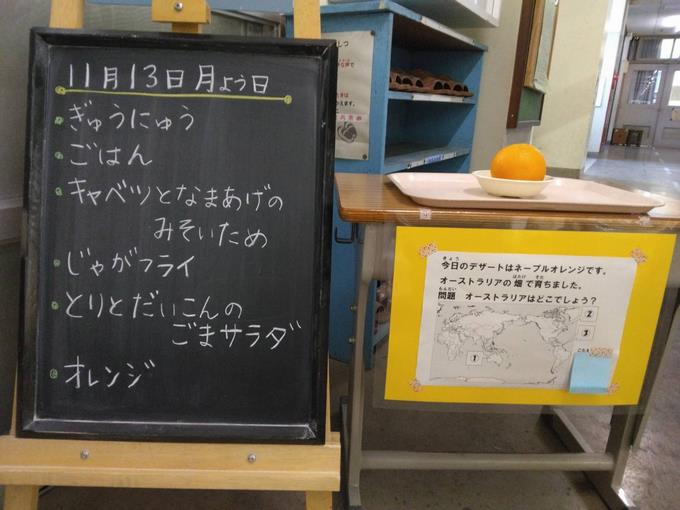 11月13日月よう日
ぎゅうにゅう
ごはん
キャベツとなまあげの
みそいため
じゃがフライ
とりとだいこんの
ごまサラダ
オレンジ
今日のデザートはネーブルオレンジです。
きょう
オーストラリアの畑で育ちました。
はたけ そだ
問題 オーストラリアはどこでしょう？
もんだい
1
2
3